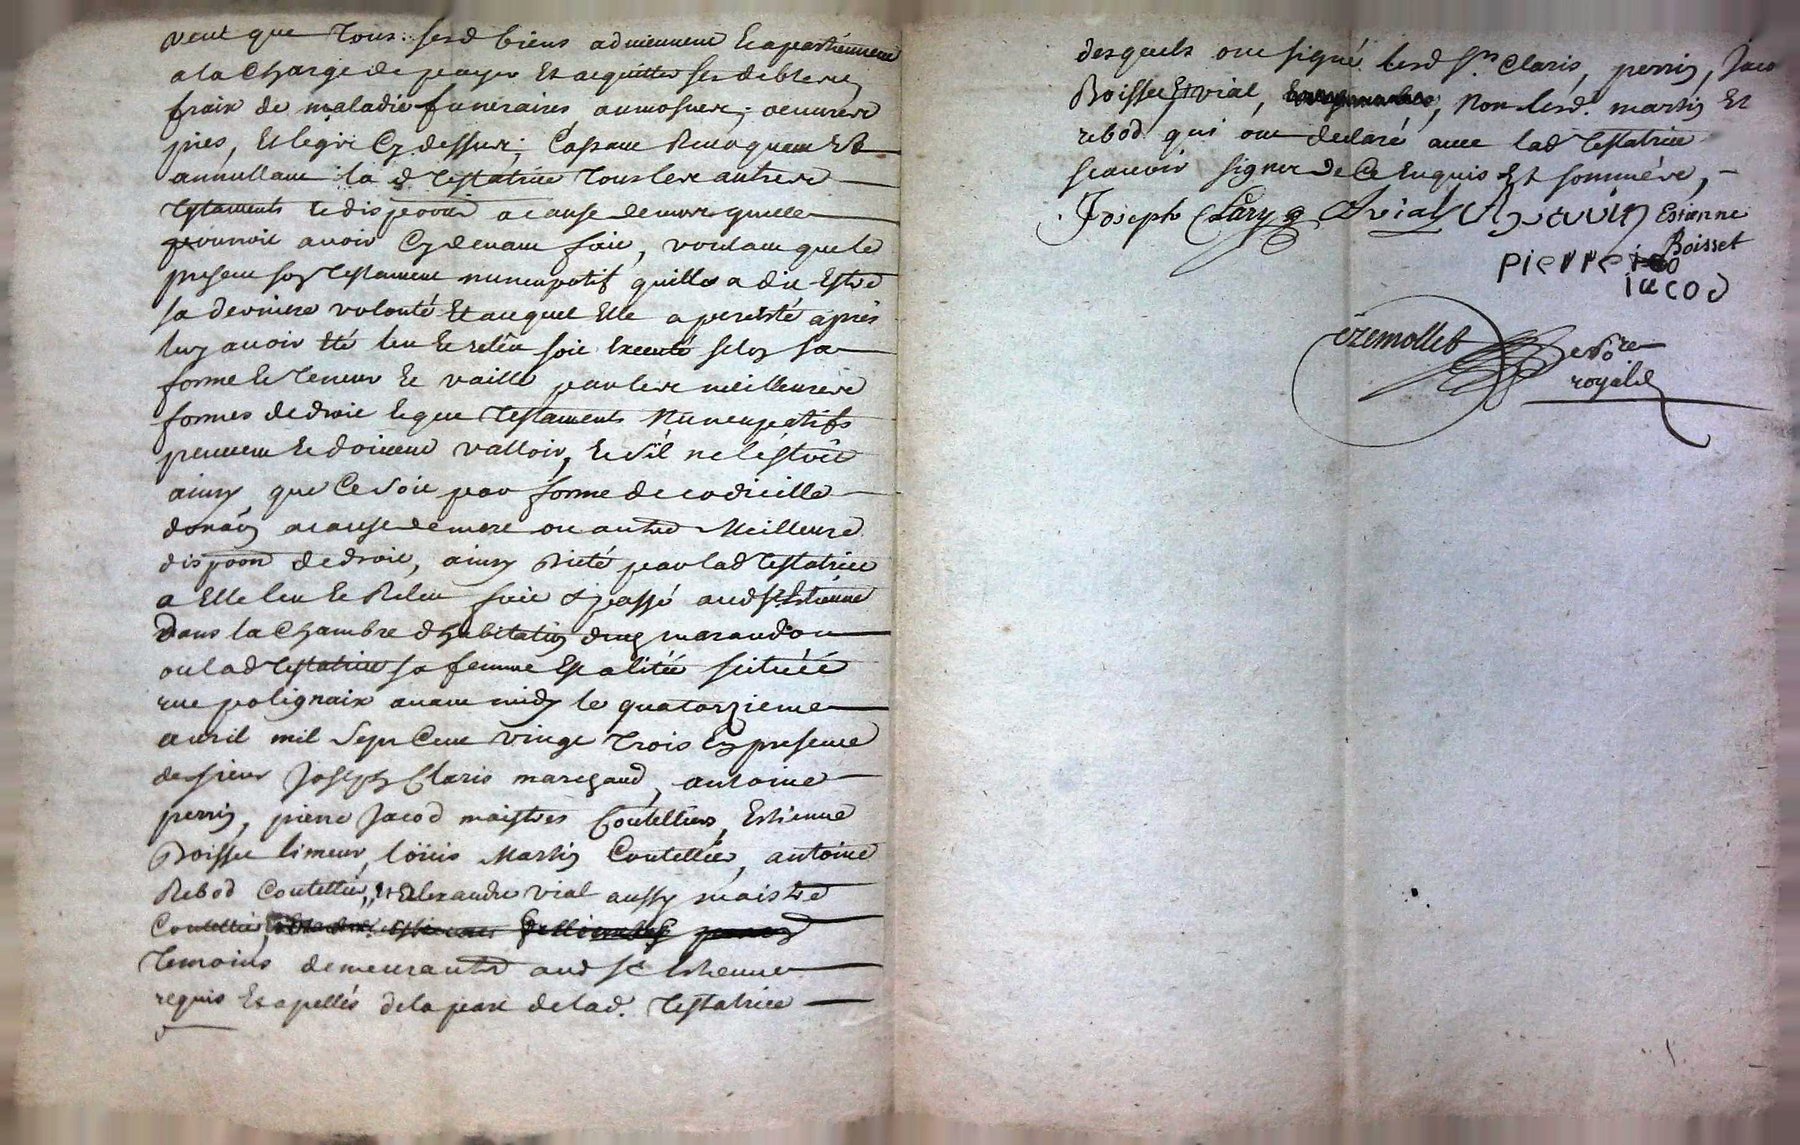 veut que tous sesd biens adviennent et apartiennent
a la charge de payer et acquitter ses debtes
fraix de maladie funeraires, aumosnes, oeuvres
pies, et legts cy dessus; cassant revoquant et
annullant lad testatrice tous les autres
testaments et dispoons a cause de mort quelle
pourroit avoir cy devant fait, voulant que le
present son testament nuncupatif quelle a dit estre
sa derniere volonté et auquel elle a persisté après
luy avoir eté leu et releu soit executé selon sa
forme et teneur et vaille par les meilleures
formes de droit et que testaments nuncupatifs
peuvent et doivent valloir, et s'il ne l'estoit
ainsy que ce soit par forme de codicille
donaon a cause de mort ou autre meilleure
dispoon de droit, ainsy dicté par lad testatrice
a elle leu et releu fait et passé aud st Estienne
dans la chambre d'habitation dud marandon
ou lad testatrice sa femme est alitée scituée
rue polignaix avant midy le quatorzieme
avril mil sept cent vingt trois en presence
de sieur Joseph Claris marchand, antoine
perrin, pierre Jacod maistres coutelliers, Estienne
Boisset limeur, loüis Martin coutellier, antoine
Rebod coutellier, et alexandre vial aussy maistre
coutellier,
temoins demeurants aud st Estienne
requis et apellés de la part de lad. testatrice
desquels ont signé lesd srs Claris, perrin, Jaco
Boisset et vial, non lesd. martin et
rebod qui ont declaré avec lad testatrice
scauoir signer de ce enquis et sommés,
Joseph Clarys A vial A pavin Estienne
Boisset
pierre
iacod
ezemollet nore
royal